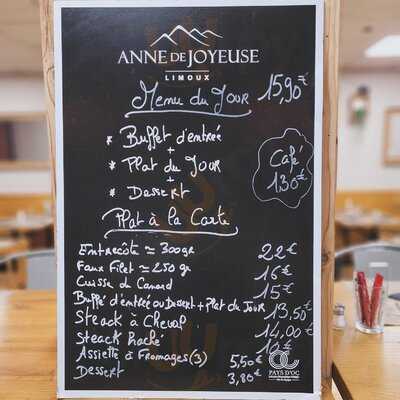 ANNE DE JOYEUSE
LIMOUX
Menu du Jour 15,90€
* Buffet d'entrée
+
* Plat du Jour
+
* Dessert
Café
1.30€
Plat à la Carte
Entrecôte ≃ 300gr 22€
Faux Filet ≃ 250 gr 16€
Cuisse de Canard 15€
Buffet d'entrée ou Dessert + Plat du Jour 13,50€
Steack à Cheval 14,00€
Steack haché 12€
Assiette à Fromages (3) 5,50€
Dessert 3,80€
PAYS D'OC